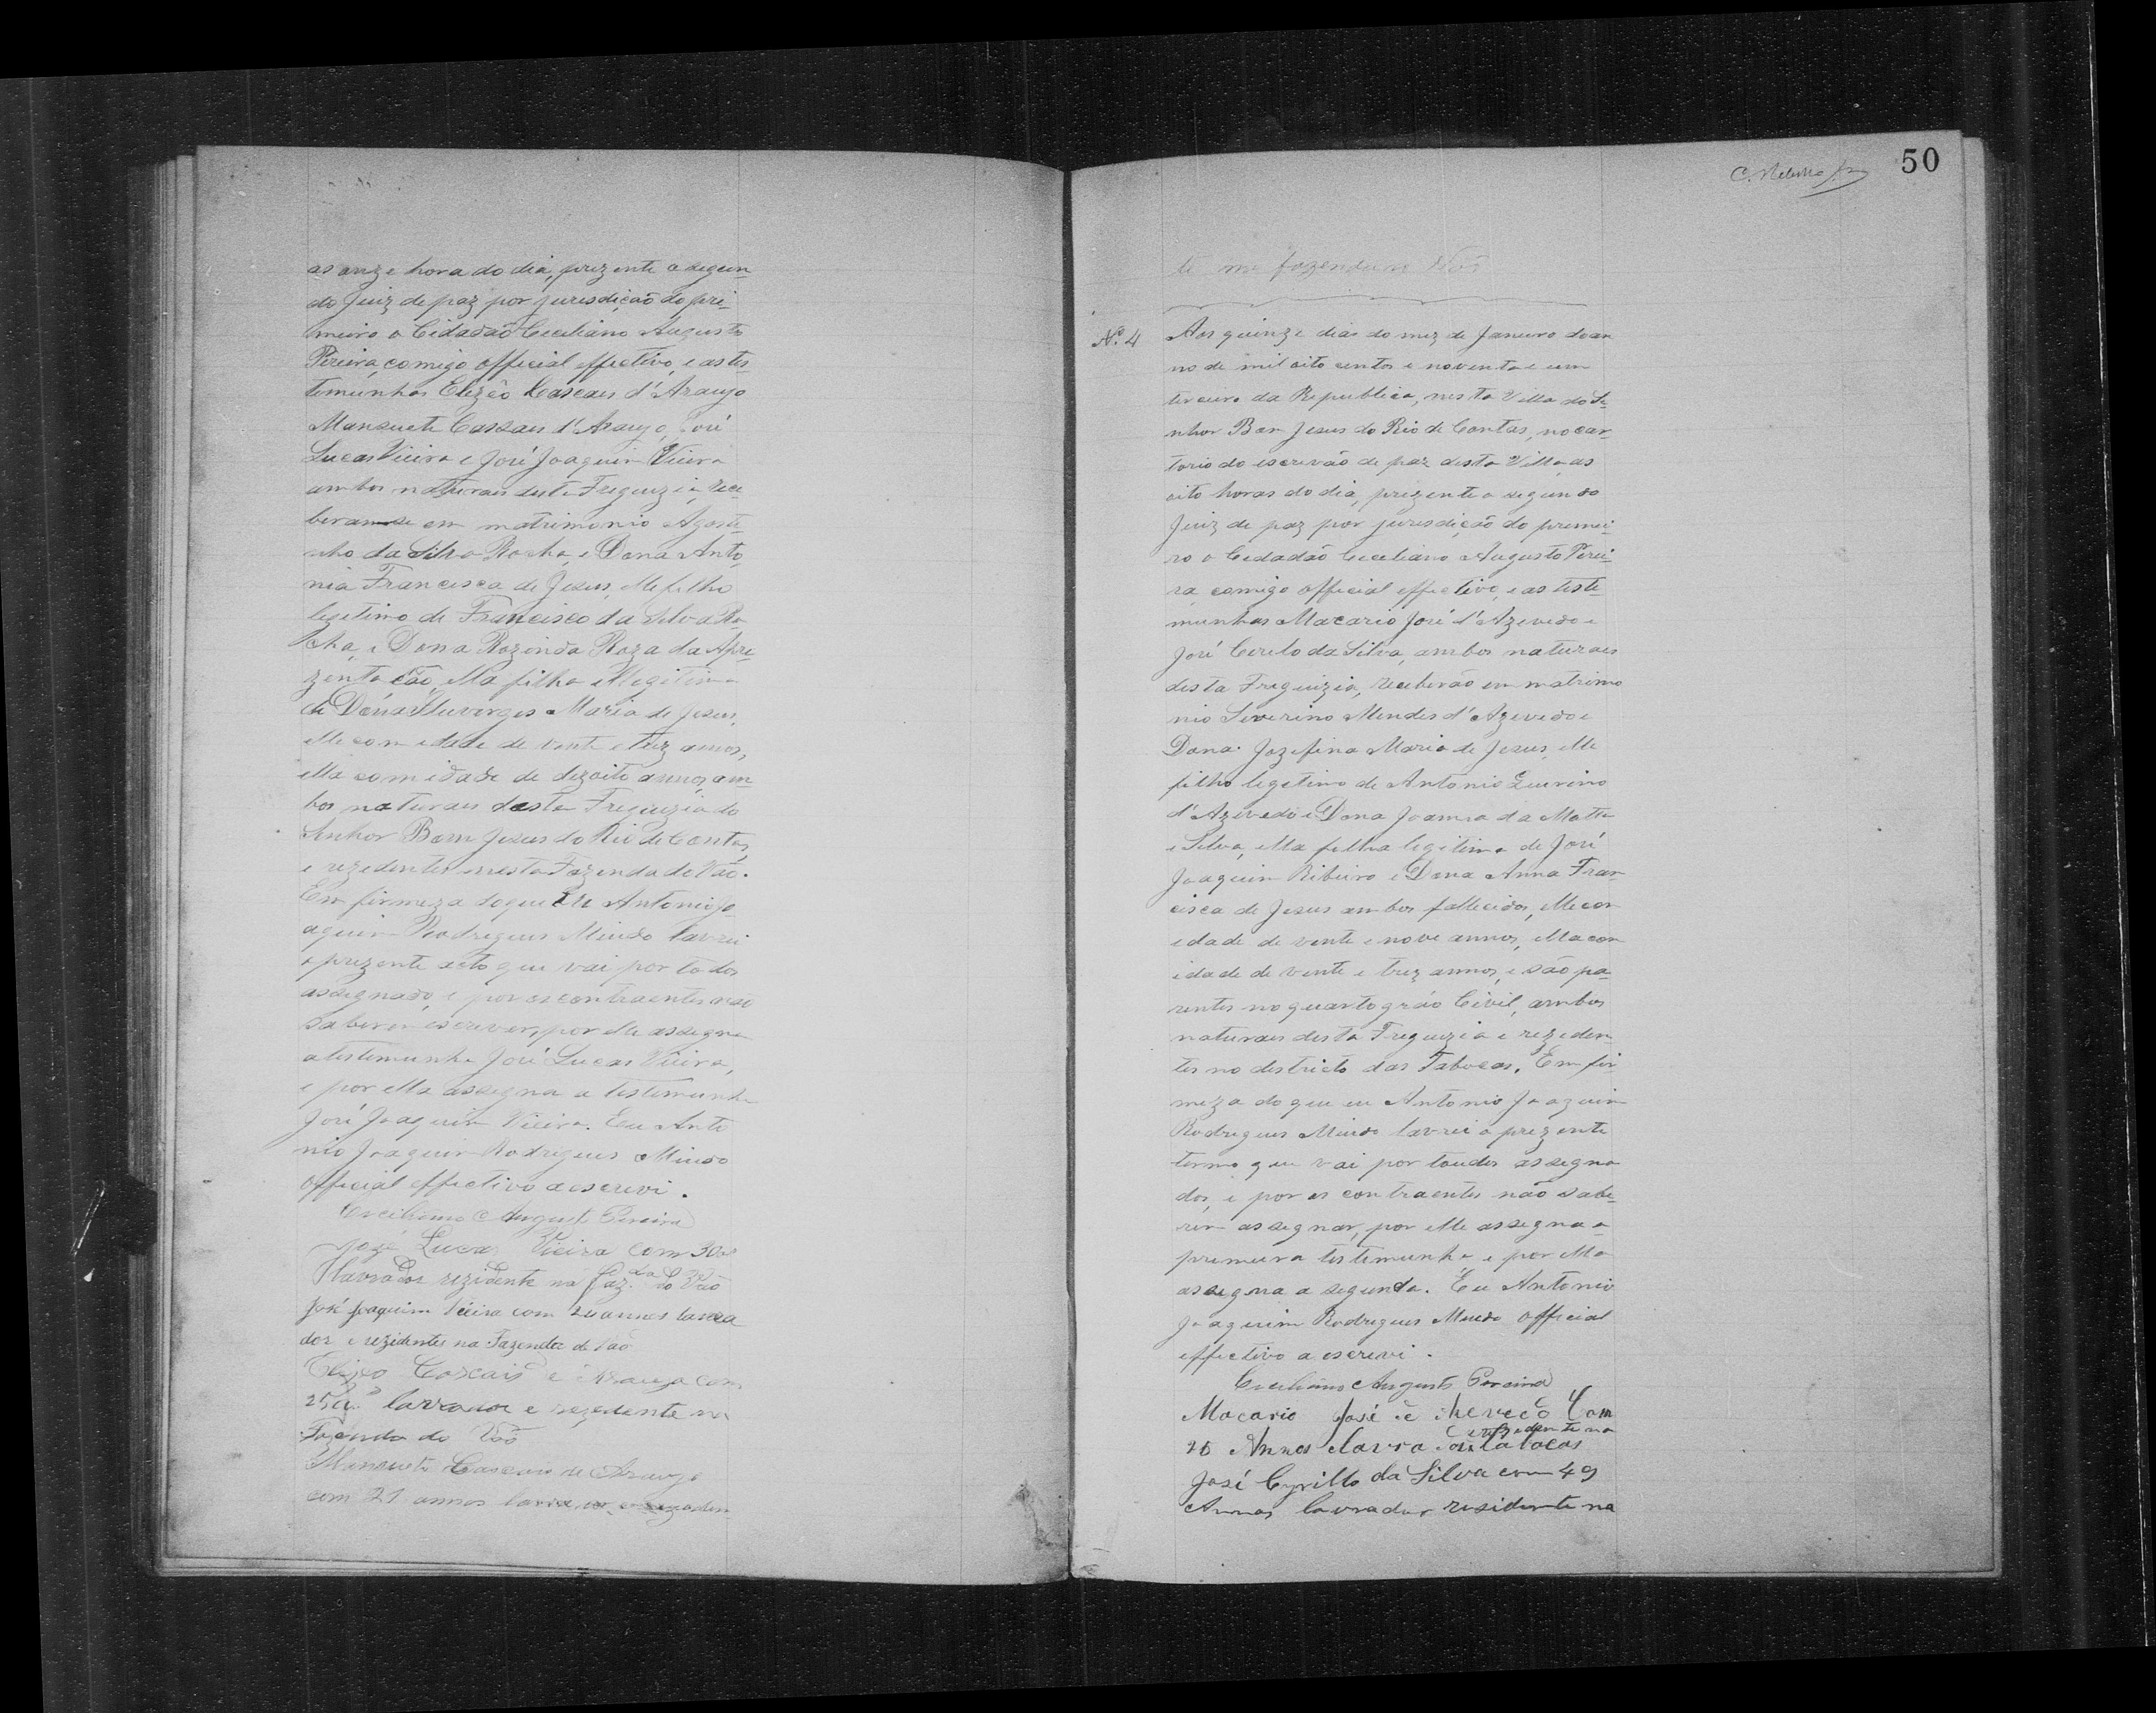 as onze hora do dia, prezente o segun-
do Juiz de paz por jurisdição do pri-
meiro o Cidadão Ceciliano Augusto
Pereira, comigo official effectivo, e as tes-
temunhas Elizêo Cascaes d'Araujo
Mansuete Cascaes d'Araujo, José
Lucas Vieira e José Joaquim Vieira
ambos naturaes desta Freguezia, rece-
beram-se em matrimonio Agosti-
nho da Silva Rocha, e Dona Anto-
nia Francisca de Jesus, elle filho
legitimo de Francisco da Silva Ro-
cha, e Dona Rozinda Roza da Apre-
zentação, ella filha illegitima
de Dona Maria de Jesus,
elle com idade de vinte e trez annos,
ella com idade de dezoito annos, am-
bos naturaes desta Freguizia do
Senhor Bom Jesus do Rio de Contas,
e rezidentes nesta Fazenda de Vão.
Em firmeza do que Eu Antonio Jo-
aquim Rodrigues Miudo lavrei
o prezente acto que vai por todos
assegnado, e por os contraentes não
saberem escrever, por elle assegna
a testemunha José Lucas Vieira,
e por ella assegna a testemunha
José Joaquim Vieira. Eu Anto
nio Joaquim Rodrigues Miudo
official effectivo a escrevi.
Ceciliano Augusto Pereira
José Lucas Vieira com 30
lavrador rezidente na faz.da do Vão
José Joaquim Vieira com annos lavra
dor e rezidentes na Fazenda de Vão
Elizeo Cascais e Araujo com
25 lavrador e rezedente na
Fazenda do Vão
Mansuete Cascais de Araujo
com 21 annos lavrador e rezeden-
50
te na fazenda Vão
N.º 4
Aos quinze dias do mez de Janeiro do an
no de mil oito centos e noventa e um
terceiro da Republica, nesta Villa do Se-
nhor Bom Jesus do Rio de Contas, no car-
torio do escrevão de paz desta Villa, as
oito horas do dia, prezente o segundo
Juiz de paz por jurisdição do premei-
ro o Cedadão Ceceliano Augusto Perei-
ra, comigo official effectivo, e as teste-
munhas Macario José d'Azevedo e
José Cerelo da Silva, ambos naturaes
desta Freguizia, receberão em matrimo
nio Severino Mendes d'Azevedo e
Dona Jozefina Maria de Jesus, elle
filho legetimo de Antonio Quirino
d'Azevedo e Dona Joanna da Motta
e Silva, ella filha legitima de José
Joaquim Ribeiro e Dona Anna Fran-
cisca de Jesus ambos fallecidos, elle com
edade de vente e nove annos, ella com
idade de vente e trez annos, e são pa-
rentes no quarto gráo Civil, ambos
naturaes desta Freguezia e rezeden-
tes no destricto das Tabocas. Em fir-
meza do que eu Antonio Joaquim
Rodrigues Miudo lavrei o prezente
termo que vai por toudos assegna
dos, e por os contraentes não sabe-
rem assegnar, por elle assegna a
premeira testemunha e por ella
assegna a segunda. Eu Antonio
Joaquim Rodrigues Miudo official
effectivo a escrevi.
Ceciliano Augusto Pereira
Macario José de Azevedo Com
Annos lavrador
José Cyrillo da Silva com 49
Annos lavrador residente na